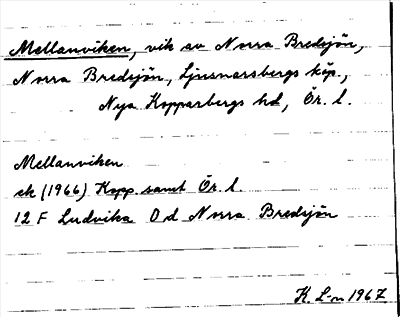 Mellanviken, vik av Norra Bredsjön,
Norra Bredsjön, Ljusnarsbergs köp.,
Nya Kopparbergs hd, Ör. l.
Mellanviken
ek (1966) Kopp. samt Ör. l.
12 F Ludvika O d Norra Bredsjön
K. L-n 1967